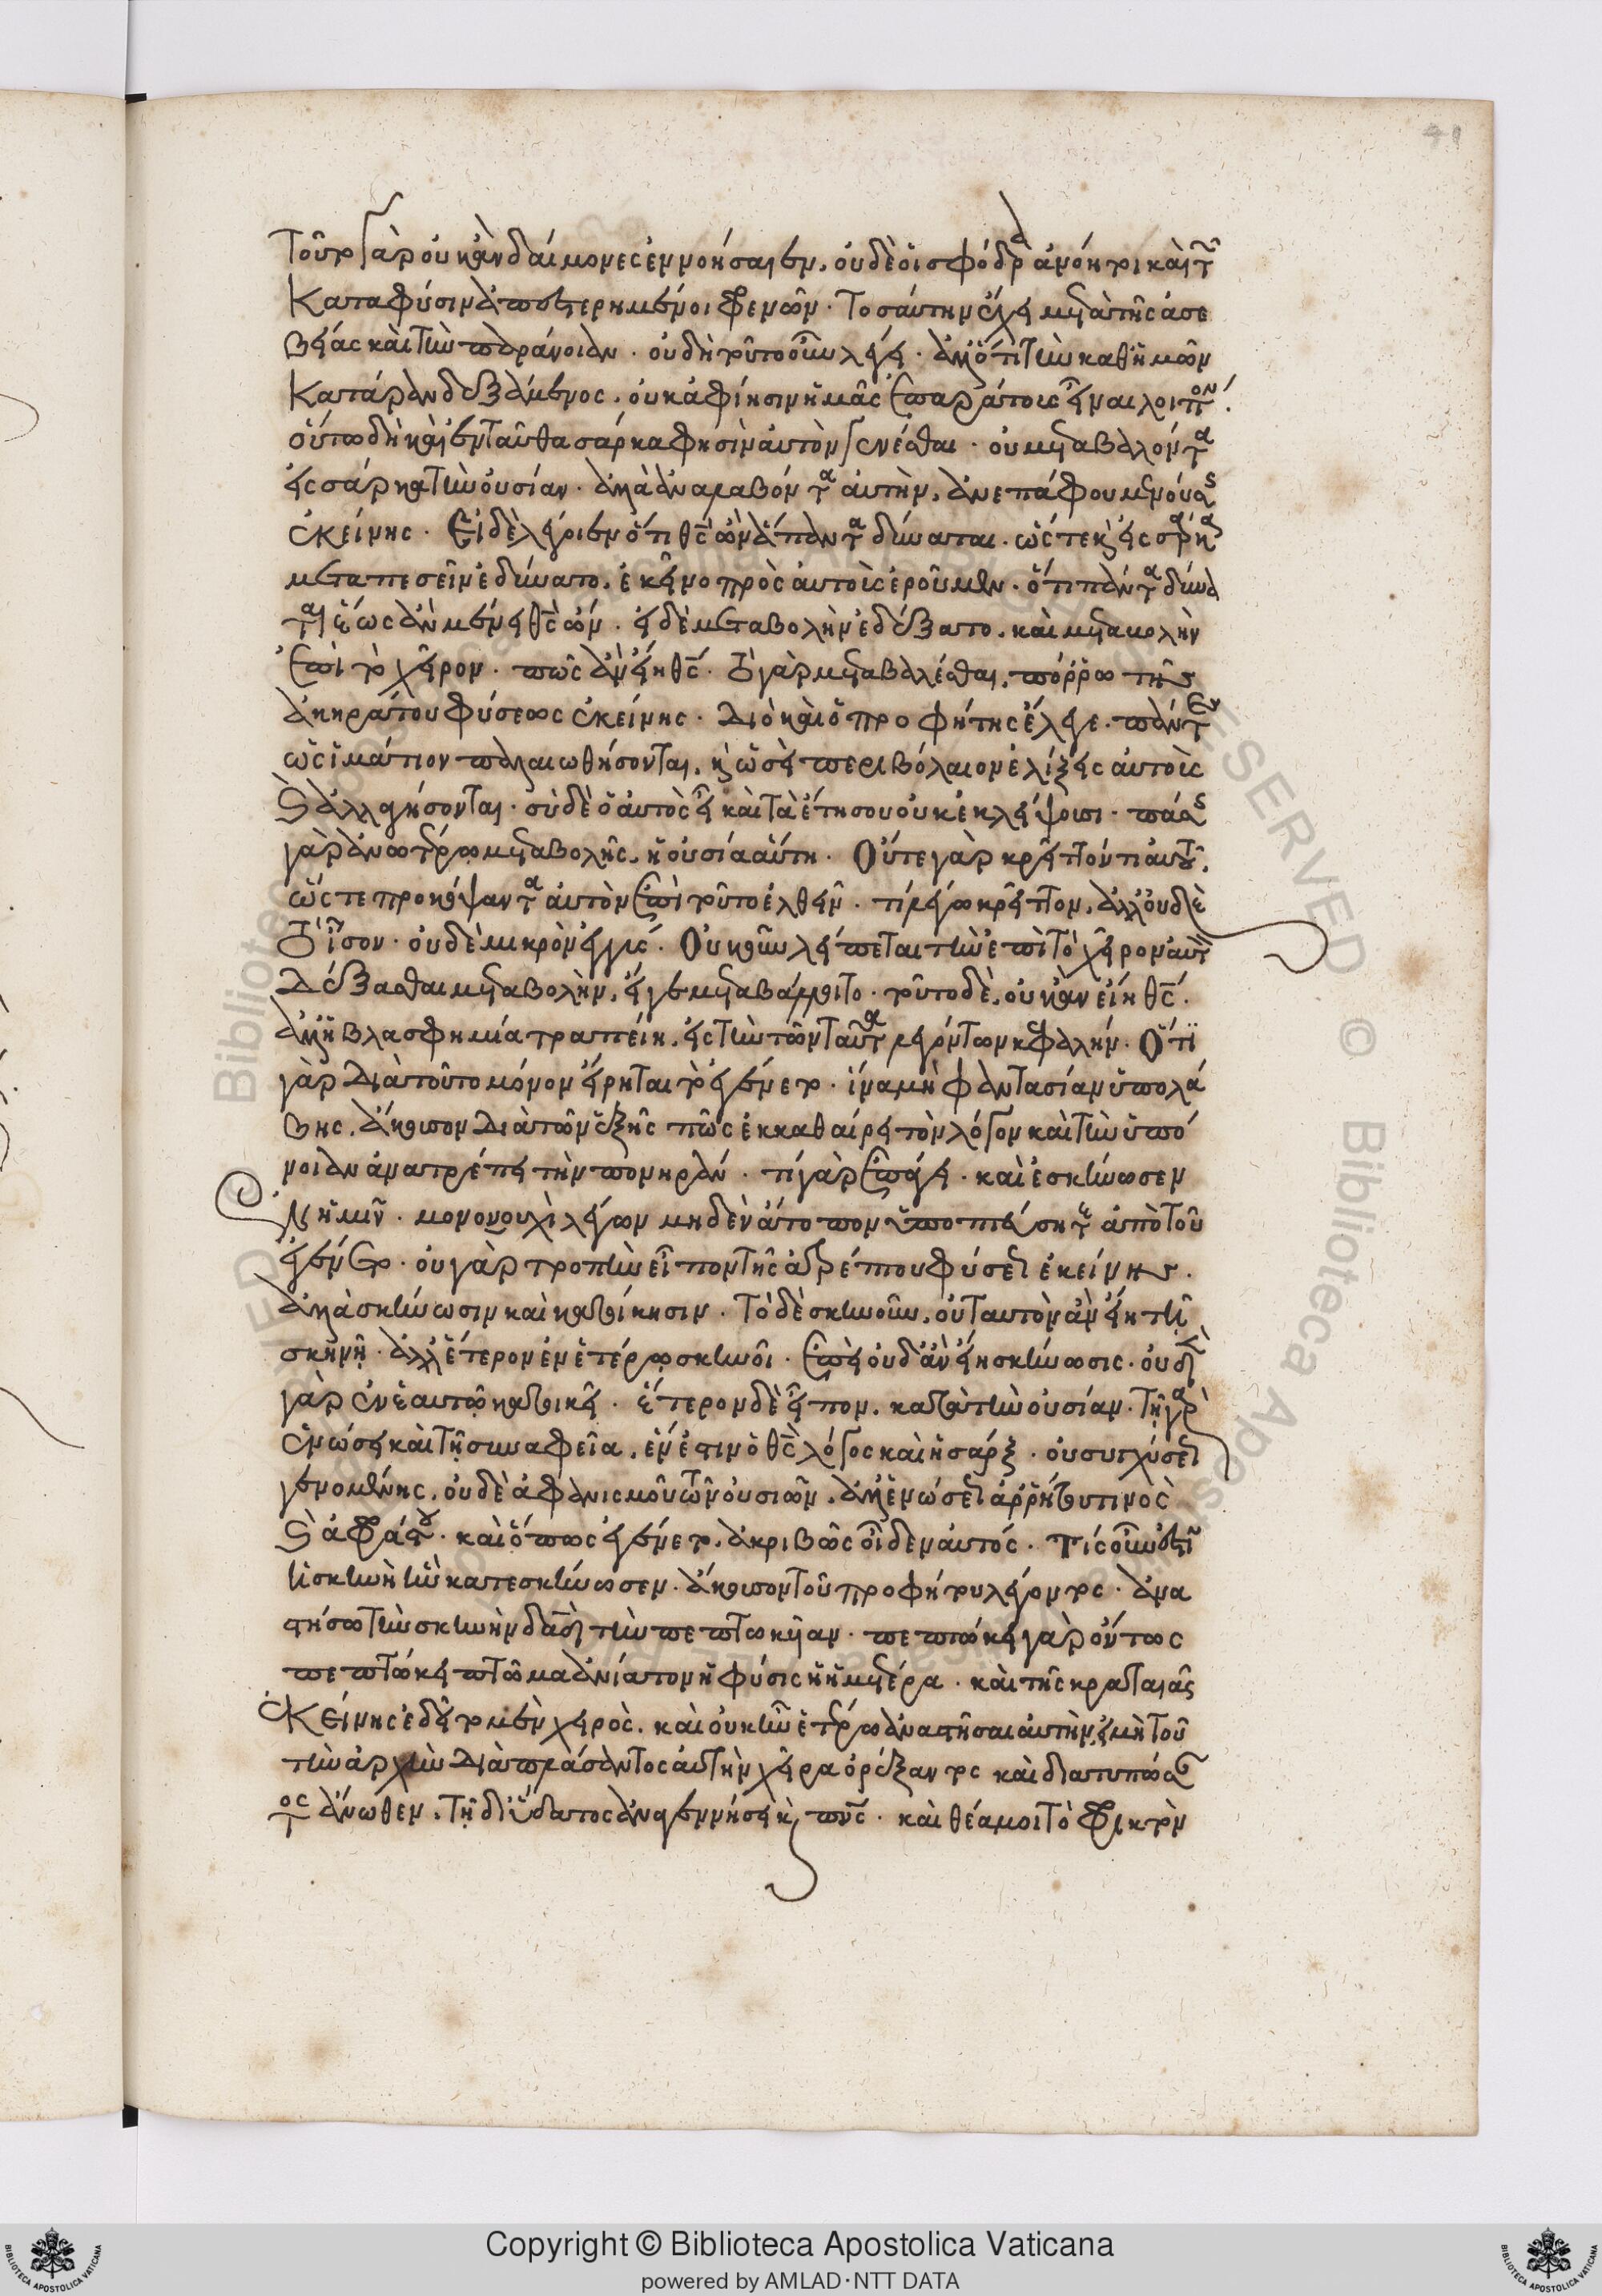 41
Τοῦτο γὰρ οὐκ ἂν δαίμονες ἐννοήσαιεν, οὐδὲ οἱ σφόδρα ἀνόητοι καὶ τῶν
Κατα φύσιν ἀπεστερημένοι φρενῶν. Τοσαύτην ἔχει μετὰ τῆς ἀσε
βείας καὶ τὴν παράνοιαν. οὐδὴ τοῦτο οὖν λέγει. ἀλλ' ὅτι τὴν καθ' ἡμῶν
Κατάραν δεξάμενος, οὐκ ἀφίησιν ἡμᾶς ἐπαράτους εἶναι λοιπόν.
οὕτω δὴ καὶ ἐνταῦθα σάρκα φησὶν αὐτὸν γενέσθαι. οὐ μεταβαλόντα
εἰς σάρκα τὴν οὐσίαν. ἀλλὰ ἀναλαβόντα αὐτὴν, ἀνεπάφου μενούσης
ἐκείνης. Εἰ δὲ λέγοιεν ὅτι θς ὢν ἅπαντα δύναται. ὥστε καὶ εἰς σάρκα
μεταπεσεῖν ἐδύνατο, ἐκεῖνο πρὸς αὐτοὺς ἐροῦμεν. ὅτι πάντα δύνα
ται ἕως ἂν μένει θς ὤν. εἰ δὲ μεταβολὴν ἐδέξατο, καὶ μεταβολὴν
ἐπὶ τὸ χεῖρον. πῶς ἂν εἴη θς. τὸ γὰρ μεταβαλέσθαι, πόρρω τῆς
ἀκηράτου φύσεως ἐκείνης. Διὸ καὶ ὁ προφήτης ἔλεγε. πάντες
ὡς ἱμάτιον παλαιωθήσονται, καὶ ὡσεὶ περιβόλαιον ἑλίξεις αὐτοὺς
καὶ ἀλλαγήσονται. σὺ δὲ ὁ αὐτὸς εἶ καὶ τὰ ἔτη σου οὐκ ἐκλείψουσι. πάσης
γὰρ ἀνωτέρω μεταβολῆς, ἡ οὐσία αὕτη. Οὔτε γὰρ κρεῖττόν τι αὐτοῦ,
ὥστε προκόψαντα αὐτὸν ἐπὶ τοῦτο ἐλθεῖν. τί λέγω κρεῖττον, ἀλλ' οὐδὲ
τὸ ἴσον. οὐδὲ μικρὸν ἐγγύς. Οὐκοῦν λείπεται τὴν ἐπὶ τὸ χεῖρον αὐτὸν
Δέξασθαι μεταβολὴν, εἴγε μεταβάλλοιτο. τοῦτο δὲ, οὐκ ἂν εἴη θς.
ἀλλ' ἡ βλασφημία τραπείη, εἰς τὴν τῶν ταῦτα λεγόντων κεφαλήν. Ὅτι
γὰρ διὰ τοῦτο μόνον εἴρηται τὸ ἐγένετο. ἵνα μὴ φαντασίαν ὑπολά
βης, ἄκουσον διὰ τῶν ἑξῆς πῶς ἐκκαθαίρει τὸν λόγον καὶ τὴν ὑπό
νοιαν ἀνατρέπει τὴν πονηράν. τί γὰρ ἐπάγει. καὶ ἐσκήνωσεν
ἐν ἡμῖν. μονονουχὶ λέγων μηδὲν ἄτοπον ὑποπτεύσητε ἀπὸ τοῦ
ἐγένετο. οὐ γὰρ τροπὴν εἶπον τῆς ἀτρέπτου φύσεως ἐκείνης.
ἀλλὰ σκήνωσιν καὶ κατοίκησιν. Τὸ δὲ σκηνοῦν, οὐ ταυτὸν ἂν εἴη τῆ
σκηνῆ. ἀλλ' ἕτερον ἐν ἑτέρῳ σκηνοῖ. ἐπεὶ οὐδ' ἂν εἴη σκήνωσις. οὐδεὶς
γὰρ ἐν ἑαυτῷ κατοικεῖ. ἕτερον δὲ εἶπον, κατὰ τὴν οὐσίαν. Τῆ γὰρ
ἑνώσει καὶ τῆ συναφεία, ἕν ἐστιν ὁ θς λόγος καὶ ἡ σάρξ. οὐ συγχύσεως
γενομένης, οὐδὲ ἀφανισμοῦ τῶν οὐσιῶν, ἀλλ' ἑνώσεως ἀρρήτου τινὸς
καὶ ἀφράστου. καὶ ὅπως ἐγένετο, ἀκριβῶς οἶδεν αὐτός. Τίς οὖν ἐστιν
ἡ σκηνὴ ἣν κατεσκήνωσεν. ἄκουσον τοῦ προφήτου λέγοντος. ἀνα
στήσω τὴν σκηνὴν δαδ τὴν πεπτωκυῖαν. πεπτώκει γὰρ ὄντως
πεπτώκει πτῶμα ἀνίατον ἡ φύσις ἡ ἡμετέρα. καὶ τῆς κραταιᾶς
ἐκείνης ἐδεῖτο μὲν χειρὸς. καὶ οὐκ ἦν ἑτέρω ἀναστῆσαι αὐτὴν, μὴ τοῦ
τὴν ἀρχὴν διαπλάσαντος αὐτὴν χεῖρα ὀρέξαντος καὶ διατυπώσαν
τος ἄνωθεν. τῆ δι' ὕδατος ἀναγεννήσει καὶ πνς. καὶ θέα μοι τὸ φρικτὸν
Copyright © Biblioteca Apostolica Vaticana
powered by AMLAD·NTT DATA